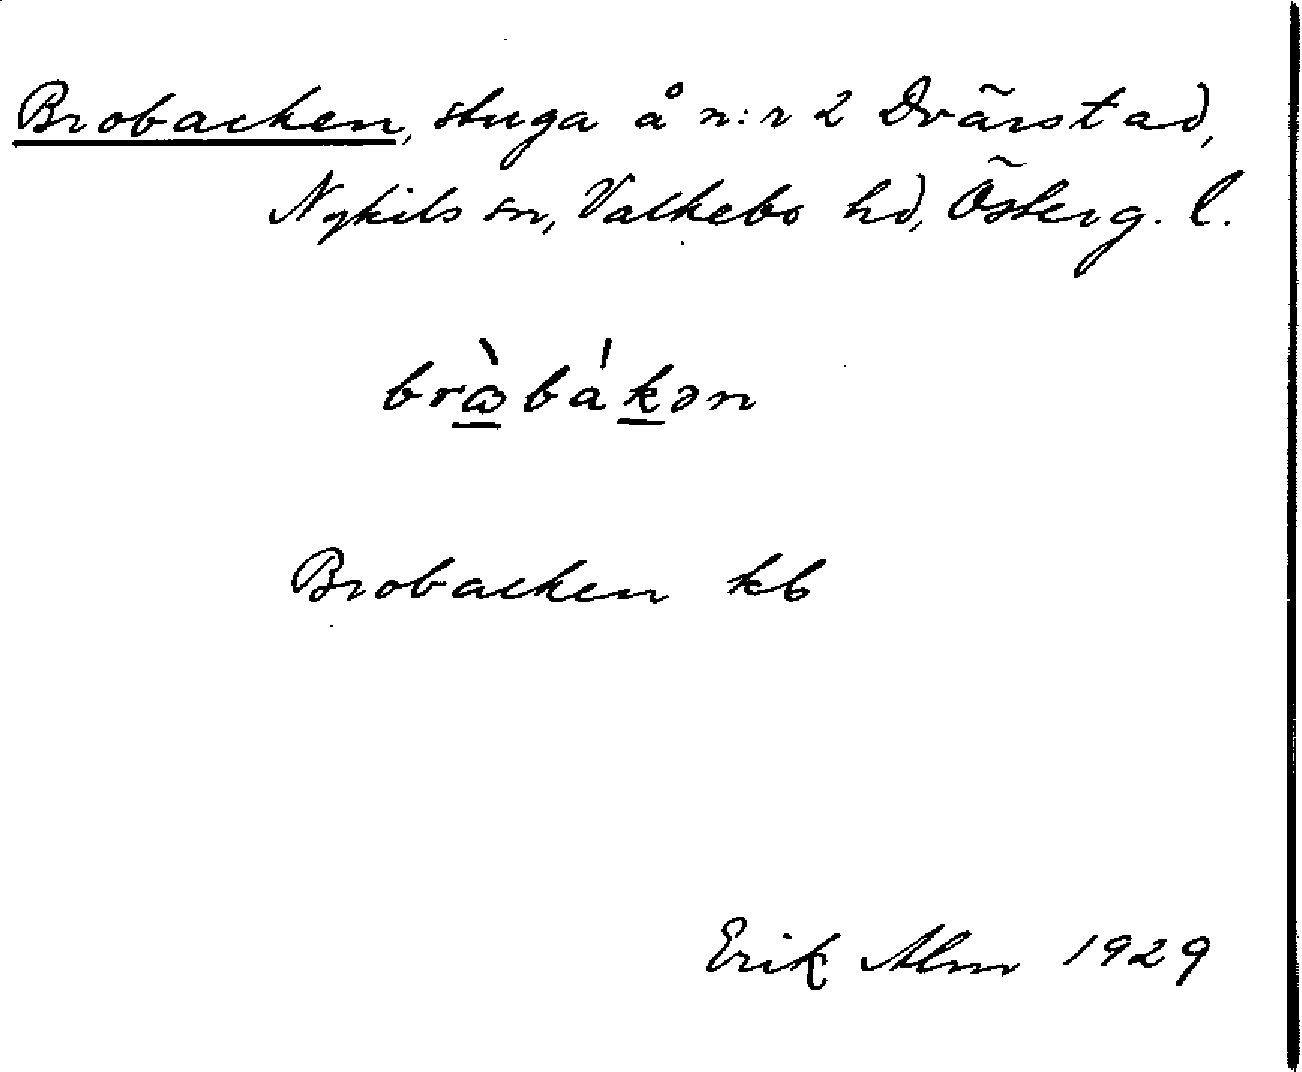 Brobacken, stuga å n:r 2 Dvärstad,
Nykils sn, Valkebo hd, Österg. l.
bròbákən
Brobacken kb
Erik Alm 1929